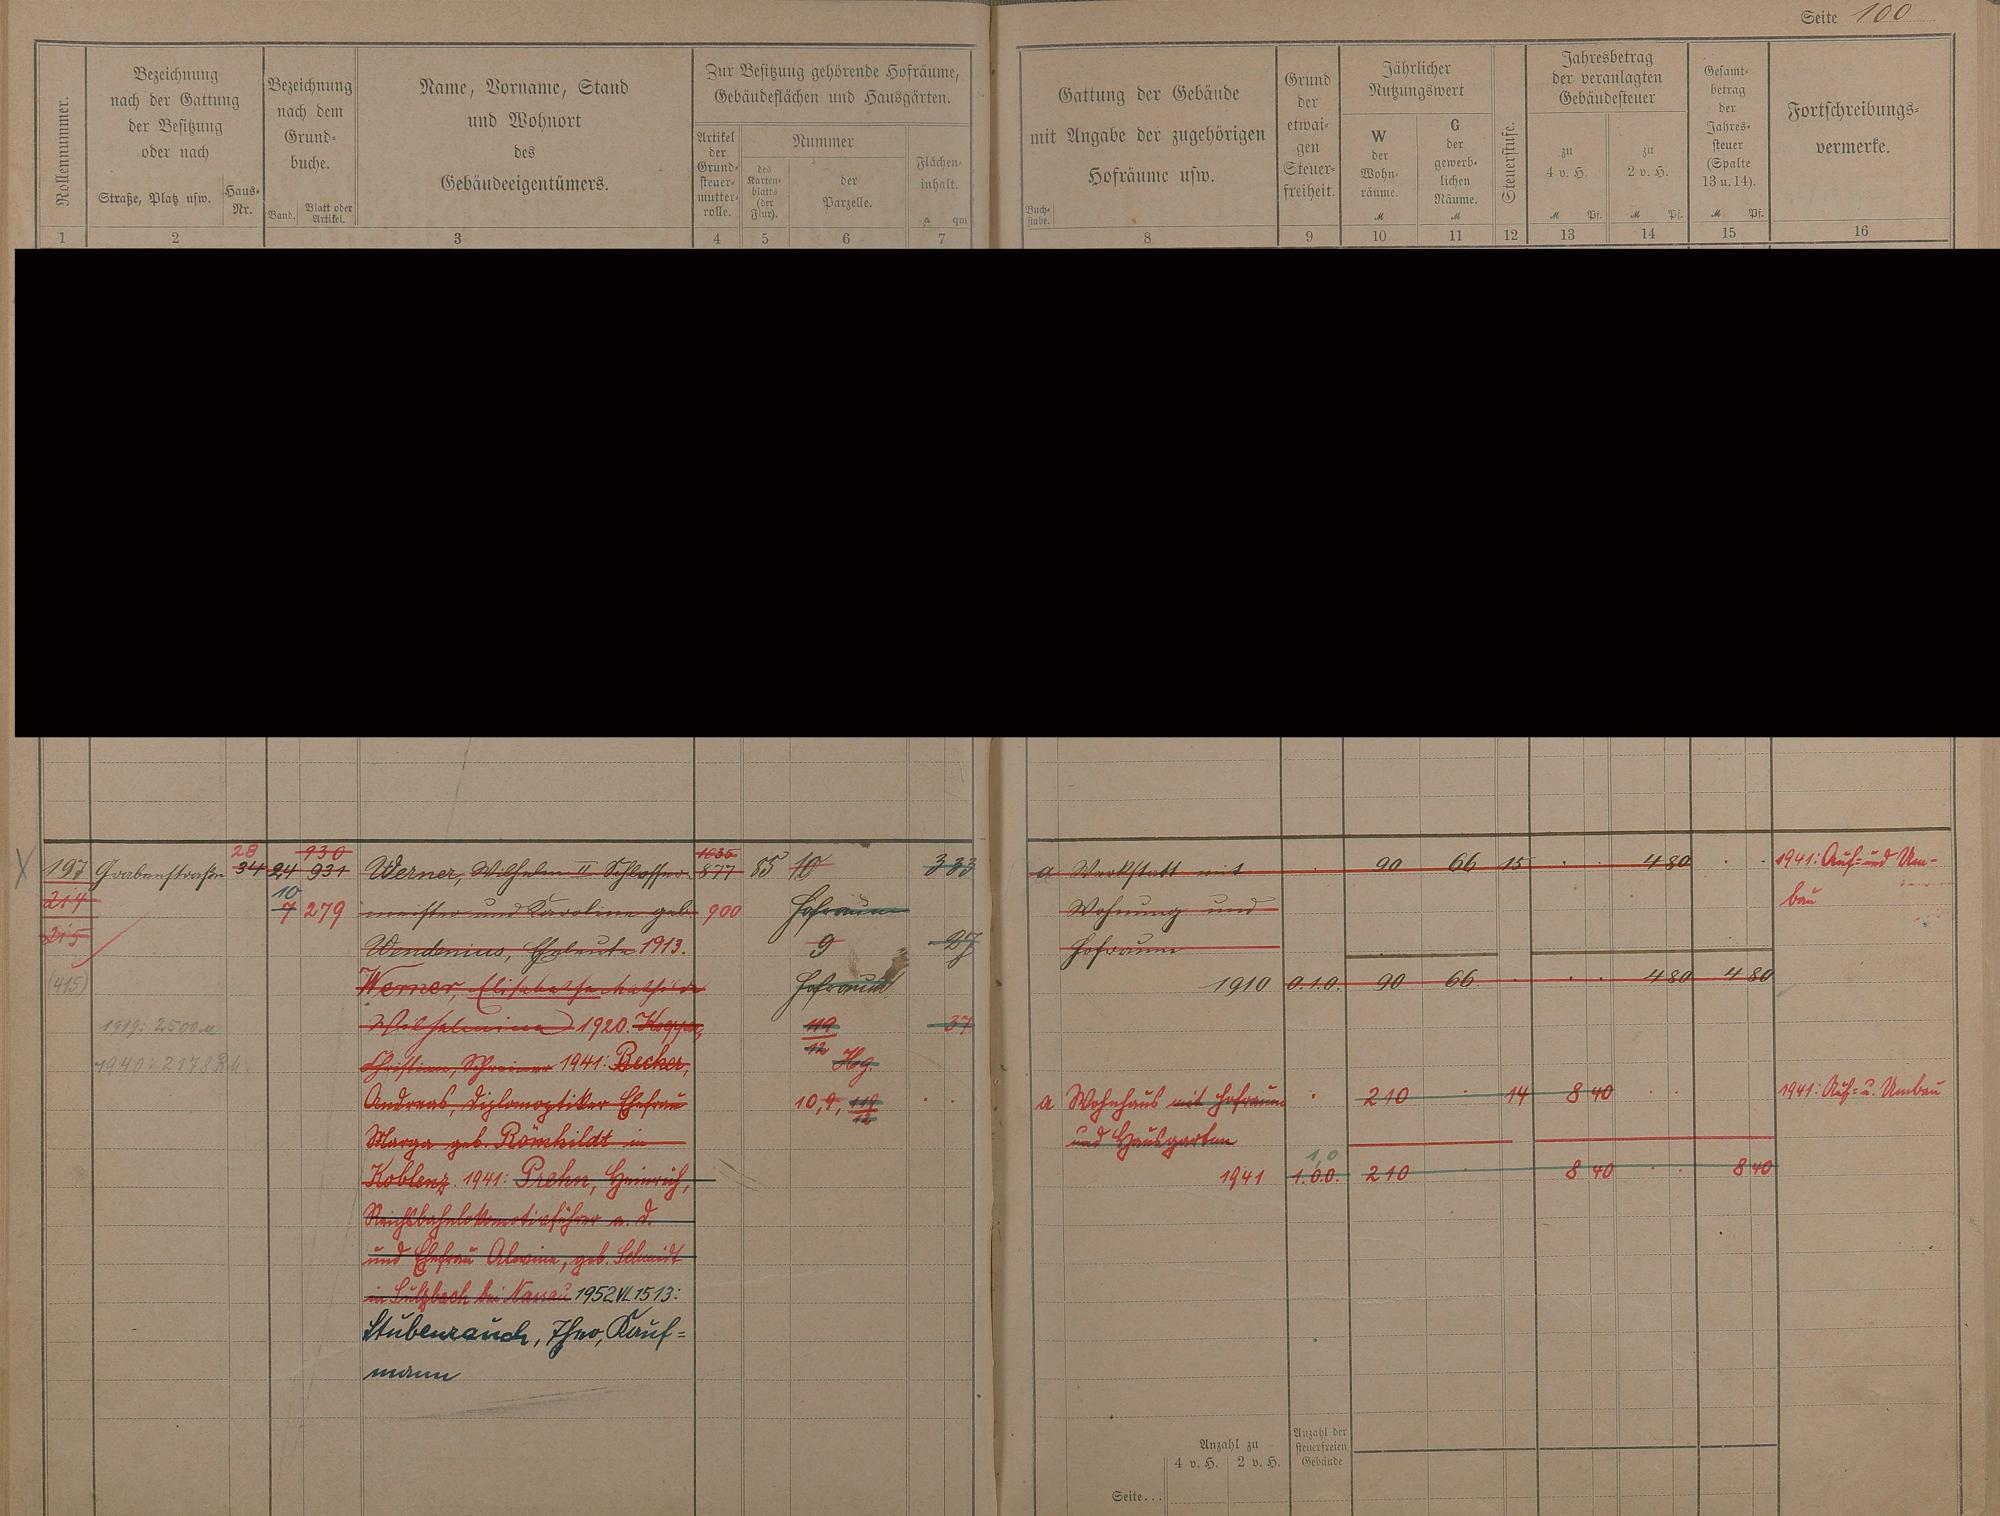 Seite 100
Rollennummer.
Bezeichnung
nach der Gattung
der Besitzung
oder nach
Straße, Platz usw.
Haus-
Nr.
Bezeichnung
nach dem
Grund-
buche.
Band.
Blatt oder
Artikel.
Name, Vorname, Stand
und Wohnort
des
Gebäudeeigentümers.
Zur Besitzung gehörende Hofräume,
Gebäudeflächen und Hausgärten.
Artikel
der
Grund-
steuer-
mutter-
rolle.
Nummer
des
Karten-
blatts
(der
Flur).
der
Parzelle.
Flächen-
inhalt.
a qm
Gattung der Gebäude
mit Angabe der zugehörigen
Hofräume usw.
Buch-
stabe.
Grund
der
etwai-
gen
Steuer-
freiheit.
Jährlicher
Nutzungswert
W
der
Wohn-
räume.
M
G
der
gewerb-
lichen
Räume.
M
Steuerstufe.
Jahresbetrag
der veranlagten
Gebäudesteuer
zu
4 v. H.
M Pf.
zu
2 v. H.
M Pf.
Gesamt-
betrag
der
Jahres-
steuer
(Spalte
13 u. 14).
M Pf.
Fortschreibungs-
vermerke.
1 2 3 4 5 6 7 8 9 10 11 12 13 14 15 16
28 930 1035
197 Grabenstraße 34 24 931 Werner, Wilhelm II Schlosser- 877 85 10 333
214 10
7 279 meister und Karoline geb. 900 Hofraum
215 Wendenius, Eheleute 1913. 9 27
(415) Werner, Elisabetha Mathilde Hofraum
1919: 2500 M Wilhelmine 1920. Kopper, 119/12 37
1940: 2178 RM. Christian, Schreiner 1941: Becker, Hg.
Andreas, Diplomoptiker Ehefrau 10, 9, 119/12
Marga geb. Römhildt in
Koblenz. 1941: Prehn, Heinrich,
Reichsbahnlokomotivführer a. D.
und Ehefrau Alwine, geb. Schmidt
in Sulzbach bei Nassau 1952 VI 1513:
Stubenrauch, Theo, Kauf=
mann
a Werkstatt mit 90 66 15 4 80 1941: Auf- und Um-
Wohnung und bau
Hofraum
1910 0.1.0. 90 66 4 80 4 80
a Wohnhaus mit Hofraum 210 14 8 40 1941: Auf- u. Umbau
und Hausgarten
1,0
1941 1.0.0. 210 8 40 8 40
Anzahl zu
4 v. H. 2 v. H.
Anzahl der
steuerfreien
Gebäude
Seite...